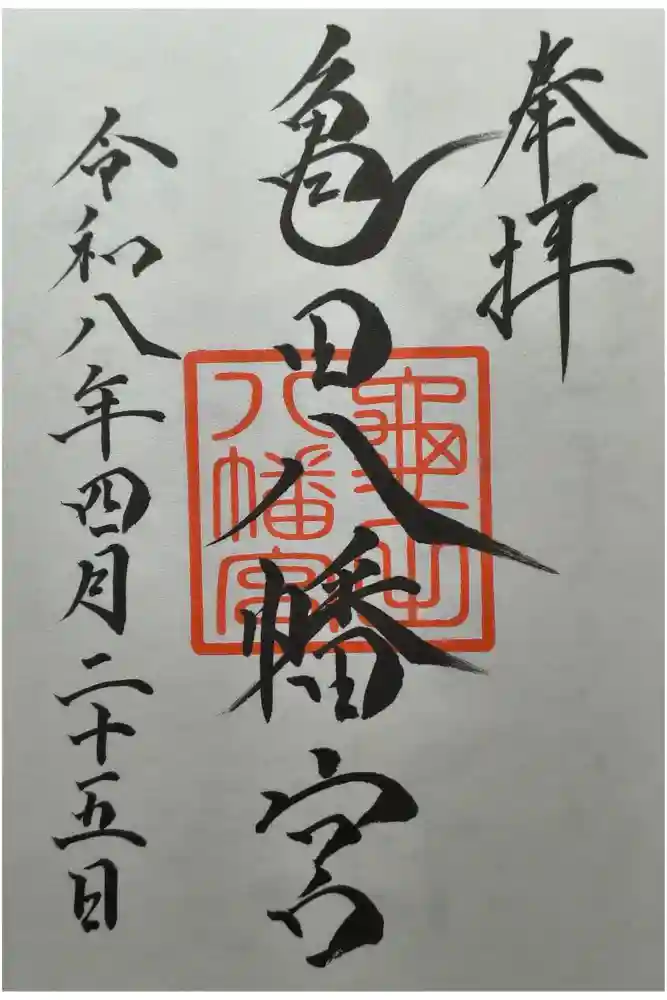 奉拝
亀田八幡宮
龜田
八幡宮
令和八年四月二十五日